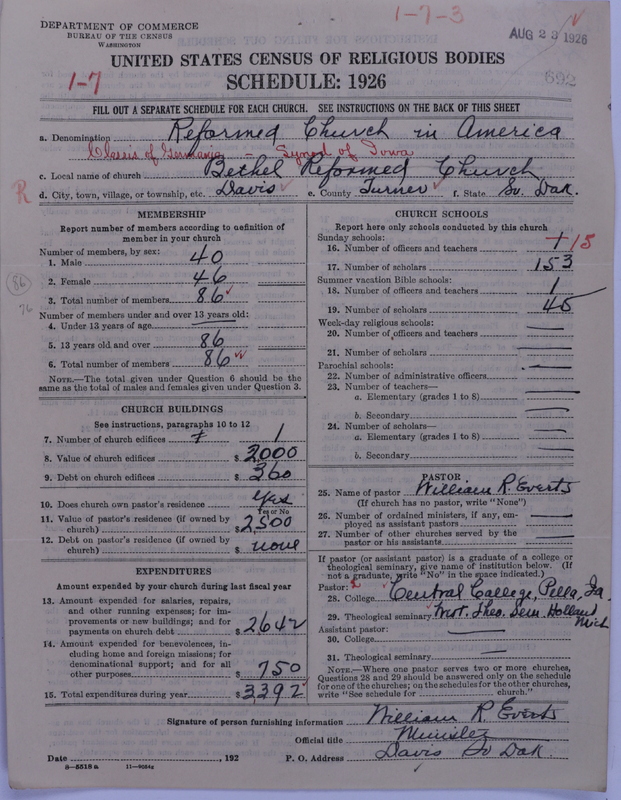 1-7-3
DEPARTMENT OF COMMERCE
BUREAU OF THE CENSUS
WASHINGTON
AUG 23 1926
UNITED STATES CENSUS OF RELIGIOUS BODIES
1-7
SCHEDULE: 1926
692
FILL OUT A SEPARATE SCHEDULE FOR EACH CHURCH. SEE INSTRUCTIONS ON THE BACK OF THIS SHEET
a. Denomination Reformed Church in America
Classis of Germania - Synod of Iowa
c. Local name of church Bethel Reformed Church
R
d. City, town, village, or township, etc. Davis e. County Turner f. State So. Dak.
MEMBERSHIP
Report number of members according to definition of
member in your church
Number of members, by sex:
1. Male 40
2. Female 46
3. Total number of members 86
86
76
Number of members under and over 13 years old:
4. Under 13 years of age
5. 13 years old and over 86
6. Total number of members 86
NOTE.—The total given under Question 6 should be the
same as the total of males and females given under Question 3.
CHURCH BUILDINGS
See instructions, paragraphs 10 to 12
7. Number of church edifices 1
8. Value of church edifices $ 3,000
9. Debt on church edifices $ 360
10. Does church own pastor's residence Yes
Yes or No
11. Value of pastor's residence (if owned by
church) $ 2500
12. Debt on pastor's residence (if owned by
church) $ none
EXPENDITURES
Amount expended by your church during last fiscal year
13. Amount expended for salaries, repairs,
and other running expenses; for im-
provements or new buildings; and for
payments on church debt $ 2642
14. Amount expended for benevolences, in-
cluding home and foreign missions; for
denominational support; and for all
other purposes $ 750
15. Total expenditures during year $ 3392
CHURCH SCHOOLS
Report here only schools conducted by this church
Sunday schools:
16. Number of officers and teachers 15
17. Number of scholars 153
Summer vacation Bible schools:
18. Number of officers and teachers 1
19. Number of scholars 45
Week-day religious schools:
20. Number of officers and teachers
21. Number of scholars
Parochial schools:
22. Number of administrative officers
23. Number of teachers—
a. Elementary (grades 1 to 8)
b. Secondary
24. Number of scholars—
a. Elementary (grades 1 to 8)
b. Secondary
PASTOR
25. Name of pastor William R. Everts
(If church has no pastor, write "None")
26. Number of ordained ministers, if any, em-
ployed as assistant pastors
27. Number of other churches served by the
pastor or his assistants
If pastor (or assistant pastor) is a graduate of a college or
theological seminary, give name of institution below. (If
not a graduate, write "No" in the space indicated.)
Pastor:
28. College Central College, Pella, Ia
29. Theological seminary West. Theo. Sem. Holland
Mich
Assistant pastor:
30. College
31. Theological seminary
NOTE.—Where one pastor serves two or more churches,
Questions 28 and 29 should be answered only on the schedule
for one of the churches; on the schedules for the other churches,
write "See schedule for church."
Signature of person furnishing information William R. Everts
Official title Minister
Date , 192 P. O. Address Davis So Dak.
11-9084